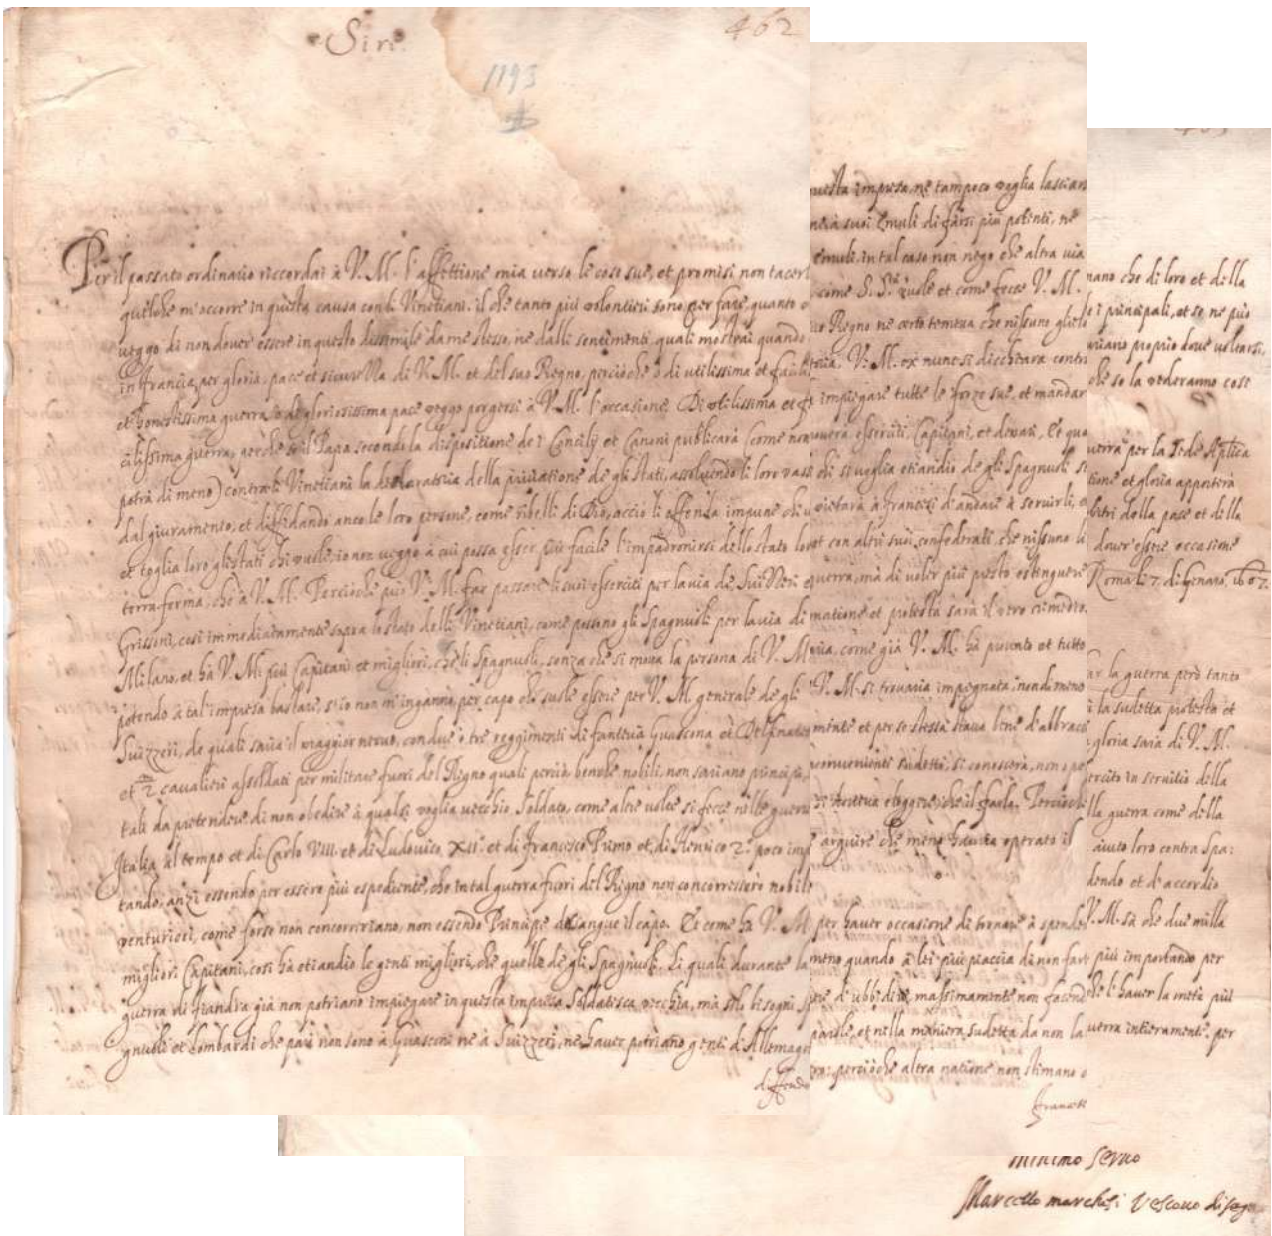 Sire.
462
1193
Per il passato ordinario riccordai à V. M. l'affettione mia verso le cose sue, et promisi non tacer
quelche m'occorre in questa causa con li Vinetiani. il che tanto più volontieri sono per fare, quanto
veggo di non dover essere in questo dissimile da me stesso, ne dalli sentimenti quali mostrai quando
in francia, per gloria, pace et sicurezza di V. M. et del suo Regno, percioche ò di utilissima et facil
et honestissima guerra, ò di gloriosissima pace veggo porgersi à V. M. l'occasione. Di utilissima et fa
cilissima guerra, perche se il Papa secondo la dispositione de i Concilij et Canoni publicarà (come non
potrà di meno) contra li Vinetiani la declaratoria della privatione de gli stati, assolvendo li loro vass
dal giuramento, et diffidando anco le loro persone, come ribelli di Dio, acciò li offenda impune chi
et toglia loro gli stati chi vuole, io non veggo à cui possa esser più facile l'impadronirsi dello stato loro
terra ferma, che à V. M. Percioche può V. M. far passare li suoi esserciti per la via de Suizzeri
Grisoni, così immediatamente sopra lo stato delli Vinetiani, come possono gli Spagnuoli per la via di
Milano, et hà V. M. più Capitani et migliori, che li Spagnuoli, senza che si mova la persona di V. M
potendo à tal'impresa bastare, s'io non m'inganno, per capo chi suole essere per V. M. generale de gli
Suizzeri, de quali saria il maggior nervo, con due ò tre reggimenti di fanteria Guascona et Delfinate
et cavalieri assoldati per militare fuori del Regno quali perciò benche nobili, non sariano principi,
tali da pretendere di non obedire à qualsi voglia vecchio Soldato, come altre volte si fece nelle guerre
Italia al tempo et di Carlo VIII. et di Ludovico XII. et di Francesco Primo et di Henrico 2.º poco imp
tando, anzi essendo per essere più espediente, che in tal guerra fuori del Regno non concorressero nobil
venturieri, come forse non concorririano, non essendo Principe del sangue il capo. Et come hà V. M
migliori Capitani, così hà etiandio le genti migliori, che quelle de gli Spagnuoli. Li quali durante la
guerra di fiandra già non potriano impiegare in questa impresa Soldatesca vecchia, mà solo bisogni
gnuoli et Lombardi che pari non sono à Guasconi ne à Suizzeri, ne haver potriano genti d'Allemag
questa impresa, ne tampoco voglia lasciar
suoi Emuli di farsi più potenti, ne
emuli. in tal caso non nego che altra via
come S. S.tà vuole et come fece V. M.
Regno ne certo temeva che nissuno glielo
V. M. ex nunc si dicchiara contra
impiegare tutte le forze sue, et mandar
esserciti, Capitani, et denari, Et qua
di si voglia etiandio de gli Spagnuoli se
vietarà à francesi d'andare à servirli, e
et con altri suoi confederati, che nissuno li
guerra, mà di voler più presto estinguere
matione et protesta sarà il vero rimedio.
come già V. M. hà provato et tutto
V. M. si trovaria impegnata, nondimeno
mente et per se stessa stava bene d'abbracc
convenienti sudetti, si conoscerà, non
eleggere, che il farla. Percioche
arguire che meno havria operato il
per haver occasione di tornare à spende
meno quando à lei più piaccia di non fare
d'ubbidire, massimamente non facend
parole, et nella maniera sudetta da non la
percioche altra natione non stimano
frances
che di loro et della
i principali, et se ne può
proprio dove voltarsi,
che so la vederanno così
guerra per la Sede Aplica
et gloria apportarà
arbitri della pace et della
dover essere occasione
Roma li 7. di Genaro, 1607.
la guerra però tanto
la sudetta protesta et
gloria sarà di V. M.
essercito in servitio della
guerra come della
aiuto loro contra Spa:
et d'accordio
V. M. sà che due milla
più importando per
l'haver la metà più
guerra intieramente per
minimo Servo
Marcello marchesi Vescovo di seg